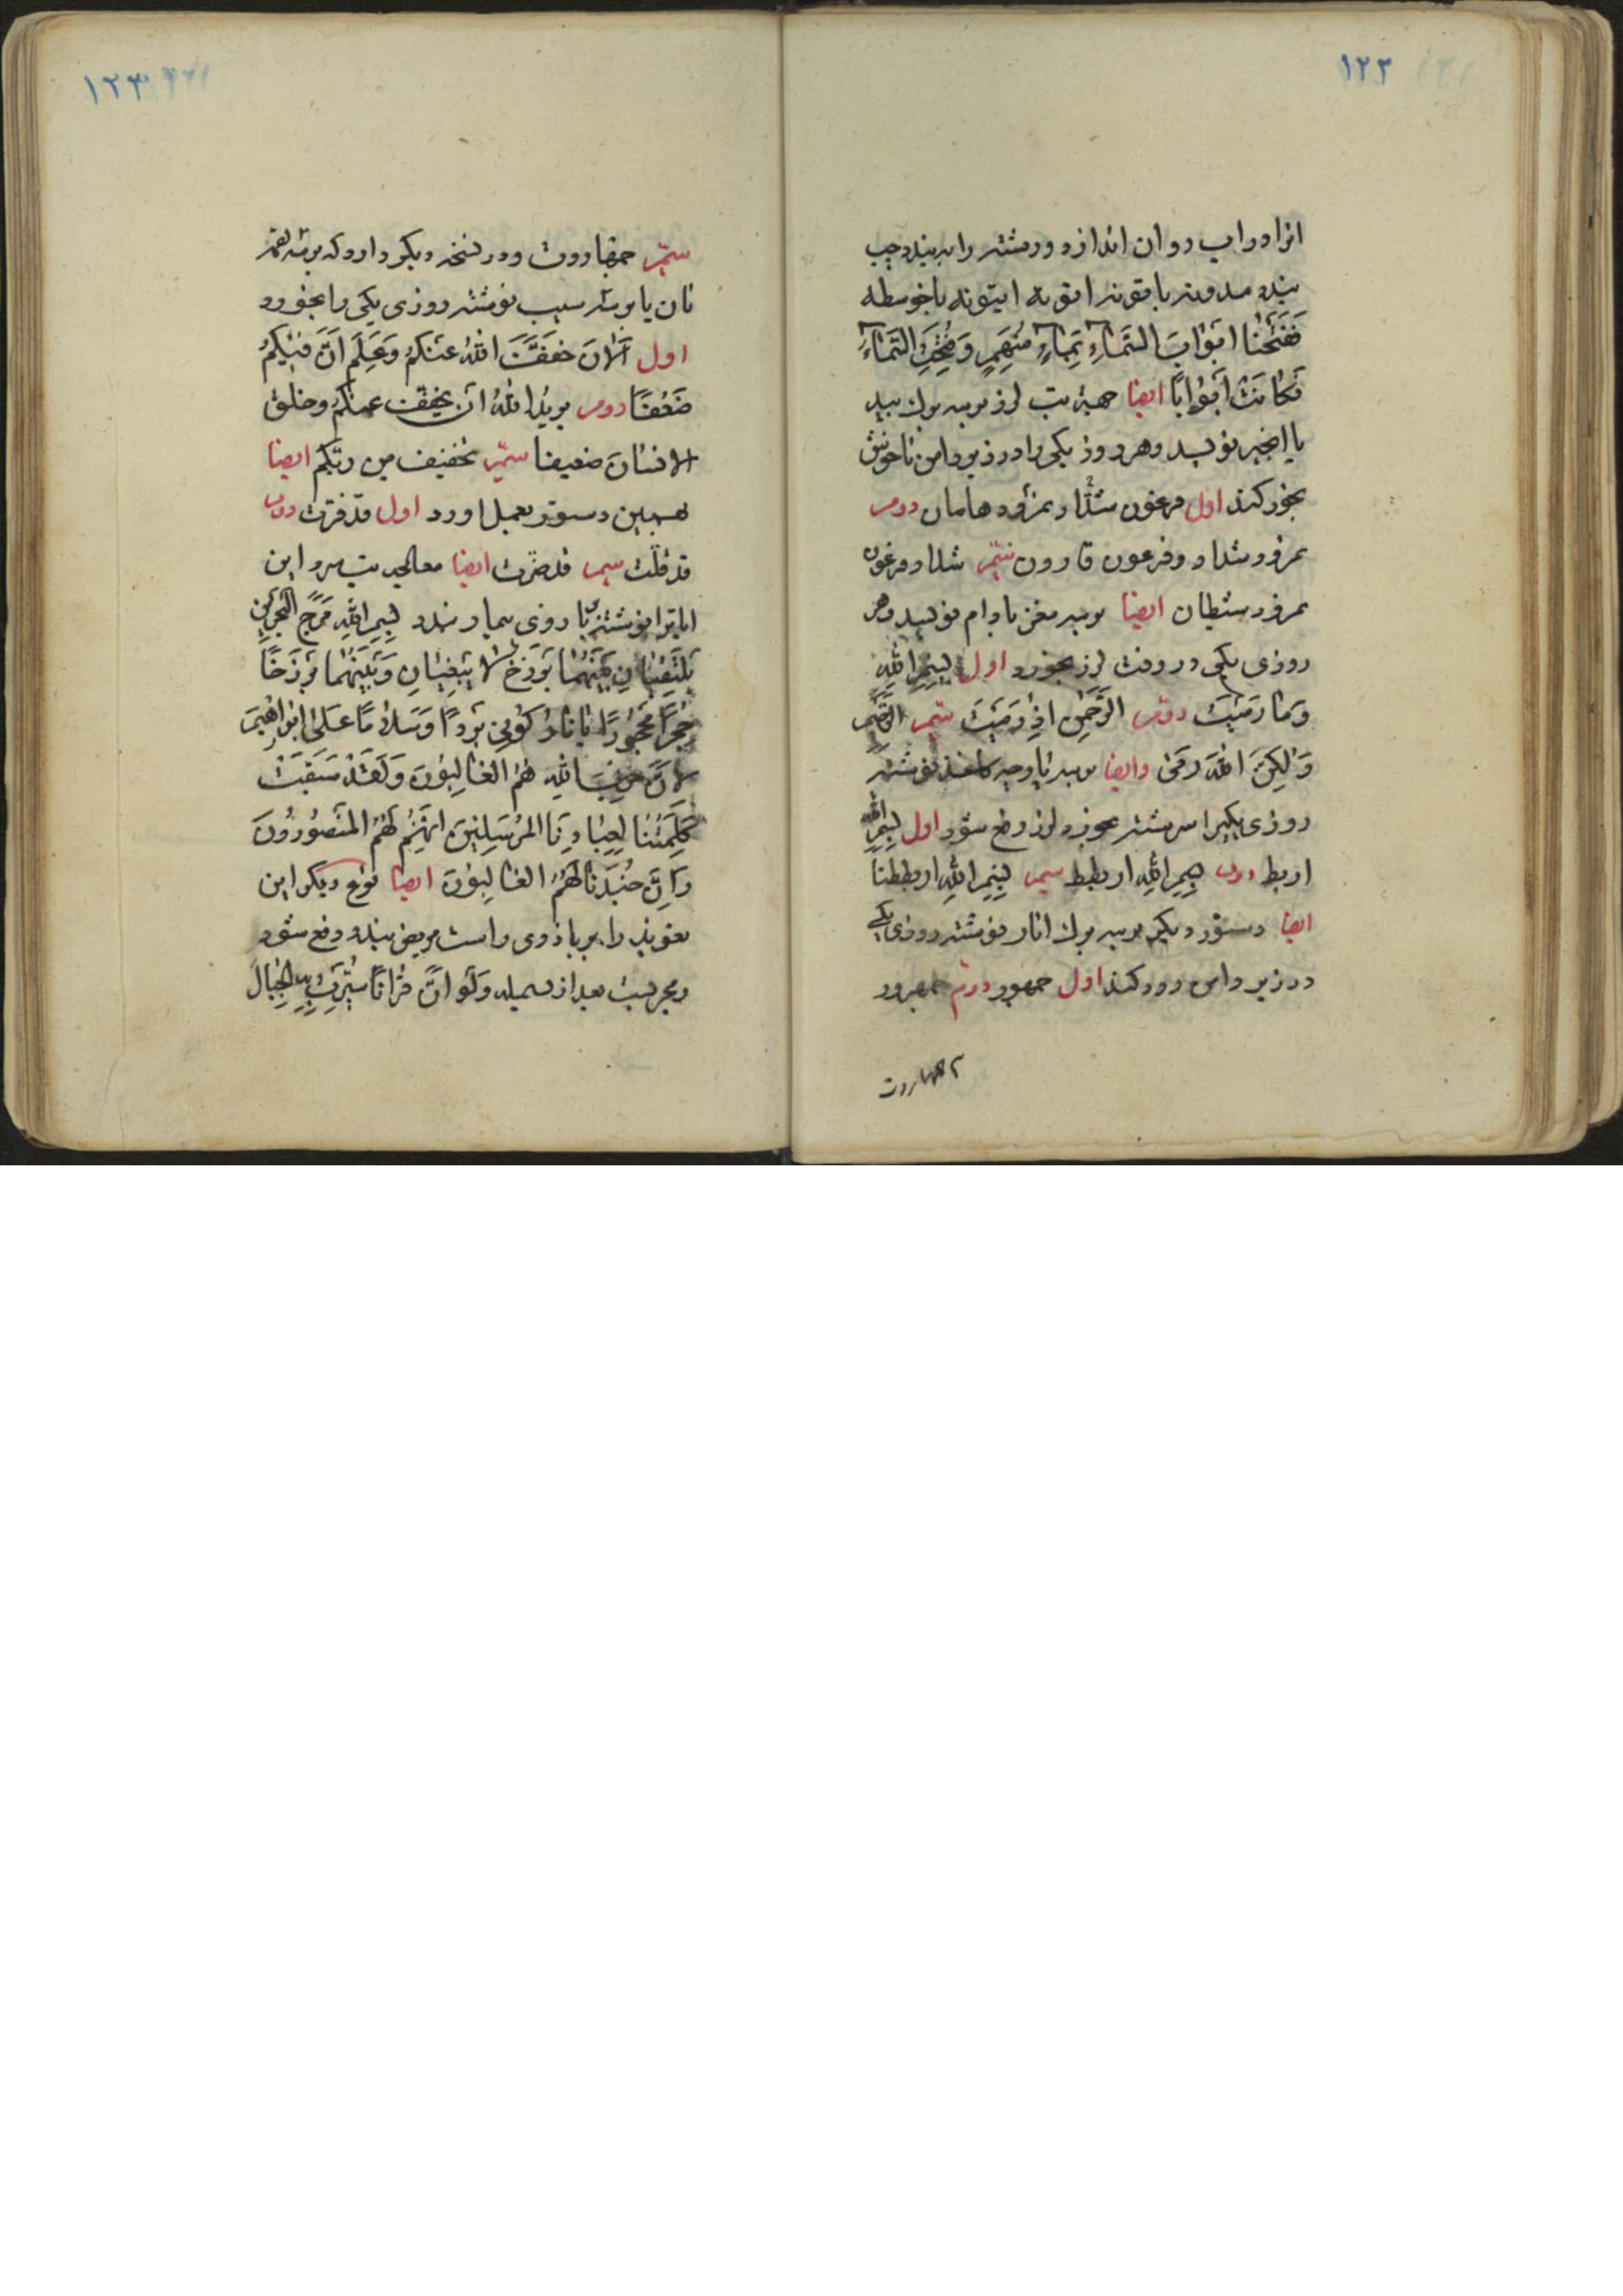 ۱۲۲
انرا در اب روان اندازد و رشته را به بندد چپ
بندد مدونه یا قونه اقونه ایتونه یا خوسطه
فَفَتَحْنا اَبْوابَ السَّماءِ بِماءٍ مُنْهَمِرٍ وَفُتِحَتِ السَّماءُ
فَكانَتْ اَبْواباً ایضا جهة تب لرز بر سه برك بید
یا انجیر نویسد وهر روز یکی را در زیر دامن ناخوش
بخور کند اول فرعون شداد نمرود هامان دوم
نمرود شداد وفرعون قارون سیّم شداد فرعون
نمرود شیطان ایضا بر سه مغز بادام نویسد وهر
روزی یکی در وقت لرز بخورد اول بِسْمِ اللهِ
وَما رَمَيْتَ دوّم الرَّحْمنِ اِذْ رَمَيْتَ سیّم الرَّحیم
وَلكِنَّ اللهَ رَمى وایضا بر سه پارچه کاغذ نوشته
روزی یکیرا سرشته بخورد لرز دفع شود اول بِسْمِ اللهِ
اربط دوم بِسْمِ اللهِ اربطط سیم بِسْمِ اللهِ اربططنا
ایضا دستور دیگر بر سه برك انار نوشته روزی یکی
در زیر دامن دود کند اول جمهور دوّم جمهرور
۱۲۳
سیّم جمهاروت ودر نسخه دیگر دارد که بر سه لقمه
نان یا بر سه سیب نوشته روزی یکی را بخورد
اول اَلْانَ خَفَّفَ اللهُ عَنْكُمْ وَعَلِمَ اَنَّ فيكُمْ
ضَعْفًا دوم يريد اللهُ ان يخفف عنكم وخلق
الانسان ضعيفا سیّم تخفيف من ربكم ایضا
بهمین دستور بعمل اورد اول قد فرّت دوم
قد قلّت سیم قد ضرّت ایضا معالجه تب سرد این
ایات را نوشته بر بازوی بیمار بندد بِسْمِ اللهِ مَرَجَ الْبَحْرَيْنِ
يَلْتَقِيانِ بَيْنَهُما بَرْزَخٌ لا يَبْغِيانِ وَبَيْنَهُما بَرْزَخًا
حِجْرًا مَحْجُورًا يا نارُ كُوني بَرْدًا وَسَلامًا عَلى اِبْراهيمَ
الا انَّ حزبَ اللهِ هُمُ الغالِبُونَ وَلَقَدْ سَبَقَتْ
كَلِمَتُنا لِعِبادِنَا المُرْسَلِينَ اِنَّهُمْ لَهُمُ المَنْصُورُونَ
وَاِنَّ جُنْدَنا لَهُمُ الغالِبُونَ ایضا نوع دیگر این
تعویذ را بر بازوی راست مریض بندد دفع شود
ومجربست بعد از بسمله وَلَوْ اَنَّ قُرْانًا سُيِّرَتْ بِهِ الْجِبالُ